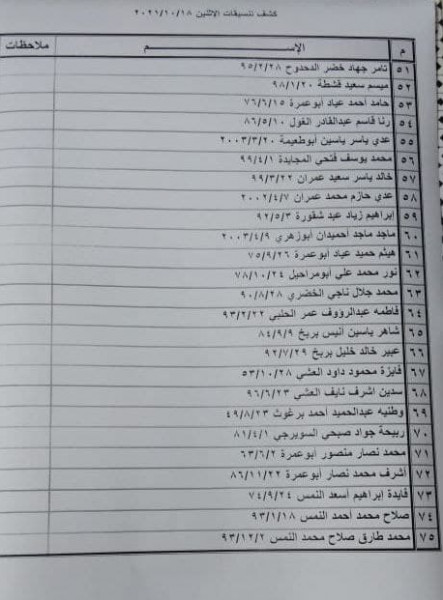 كشف تنسيقات الإثنين ٢٠٢١/١٠/١٨
م الإســـــم ملاحظات
٥١ تامر جهاد خضر الدحدوح ٩٥/٢/٢٨
٥٢ ميسم سعيد قشطة ٩٨/١/٢٠
٥٣ حامد أحمد عياد ابوعمرة ٧٦/٦/١٥
٥٤ رنا قاسم عبدالقادر الغول ٨٦/٥/١٠
٥٥ عدي ياسر ياسين أبوطعيمة ٢٠٠٣/٣/٢٠
٥٦ محمد يوسف فتحي المجايدة ٩٩/٤/١
٥٧ خالد ياسر سعيد عمران ٩٩/٣/٢٢
٥٨ عدي حازم محمد عمران ٢٠٠٢/٤/٧
٥٩ إبراهيم زياد عبد شقورة ٩٢/٥/٣
٦٠ ماجد ماجد أحميدان أبوزهري ٢٠٠٣/٤/٩
٦١ هيثم حميد عياد ابوعمرة ٧٥/٩/٢٦
٦٢ نور محمد علي أبومراحيل ٧٨/١٠/٢٤
٦٣ محمد جلال ناجي الخضري ٩٠/٨/٢٨
٦٤ فاطمه عبدالرؤوف عمر الحلبي ٩٣/٢/٢٢
٦٥ شاهر ياسين أنيس بريخ ٨٤/٩/٩
٦٦ عبير خالد خليل بريخ ٩٢/٧/٢٩
٦٧ فايزة محمود داود العشي ٥٣/١٠/٢٨
٦٨ سدين اشرف نايف العشي ٩٦/٦/٢٣
٦٩ وطنيه عبدالحميد أحمد برغوث ٤٩/٨/٢٣
٧٠ ربيحة جواد صبحي السويرجي ٨١/٤/١
٧١ محمد نصار منصور ابوعمرة ٦٣/٦/٢
٧٢ أشرف محمد نصار أبوعمرة ٨٦/١١/٢٢
٧٣ فايدة إبراهيم أسعد النمس ٧٤/٩/٢٤
٧٤ صلاح محمد أحمد النمس ٩٣/١/١٨
٧٥ محمد طارق صلاح محمد النمس ٩٣/١٢/٢